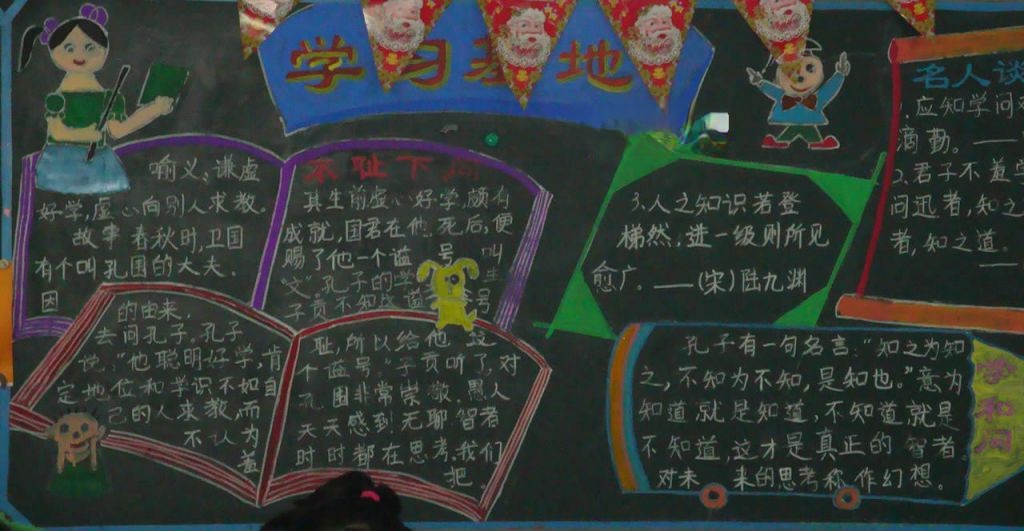 学习基地
不耻下问
喻义:谦虚
好学,虚心向别人求教。
故事 春秋时,卫国
有个叫孔围的大夫.
因
其生前虚心好学,颇有
成就,国君在他死后,便
赐了他一个谥号叫
"文"。孔子的学生
子贡不知找谥号
的由来.
去问孔子.孔子
说:"他聪明好学,肯
定地位和学识不如自
己的人求教,而
不认为
羞
耻,所以给他这
个谥号."子贡听了,对
孔围非常崇敬.愚人
天天感到无聊.智者
时时都在思考.我们
把
3.人之知识若登
梯然,进一级则所见
愈广。——(宋)陆九渊
名人谈
1.应知学问
滴勤。——
2.君子不羞学
问迅者,知之
者,知之道.
——
孔子有一句名言:"知之为知
之,不知为不知,是知也。"意为
知道就是知道,不知道就是
不知道,这才是真正的智者
对未来的思考称作幻想。
学和问